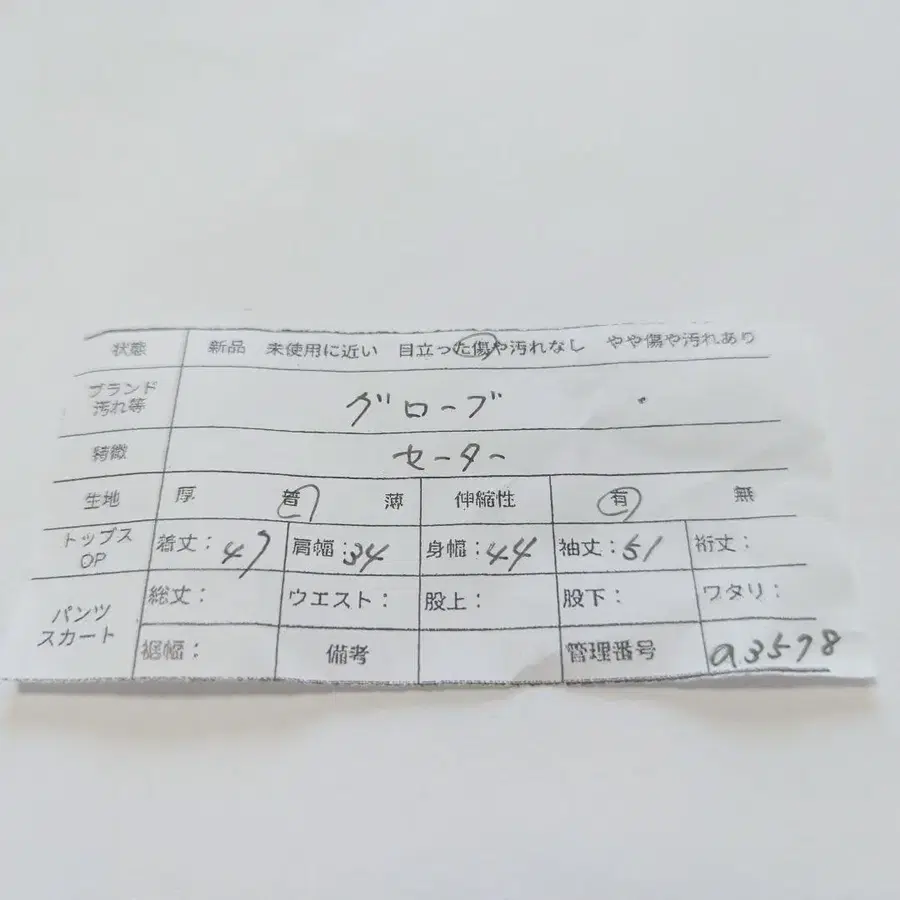 状態 新品 未使用に近い 目立った傷や汚れなし やや傷や汚れあり
ブランド
汚れ等 グローブ
特徴 セーター
生地 厚 普 薄 伸縮性 有 無
トップス
OP 着丈：47 肩幅：34 身幅：44 袖丈：51 裄丈：
パンツ
スカート 総丈： ウエスト： 股上： 股下： ワタリ：
裾幅： 備考 管理番号 a3578